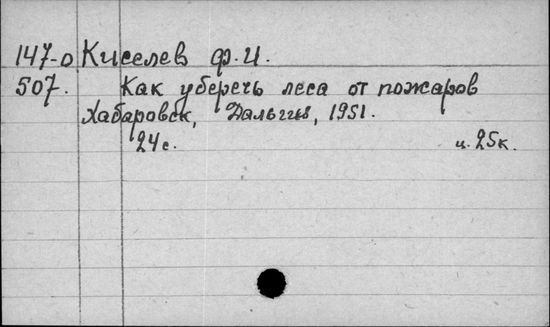 147-о Киселев Ф.И.
507. Как уберечь леса от пожаров
Хабаровск, Дальгиз, 1951.
24с. ц. 25к.